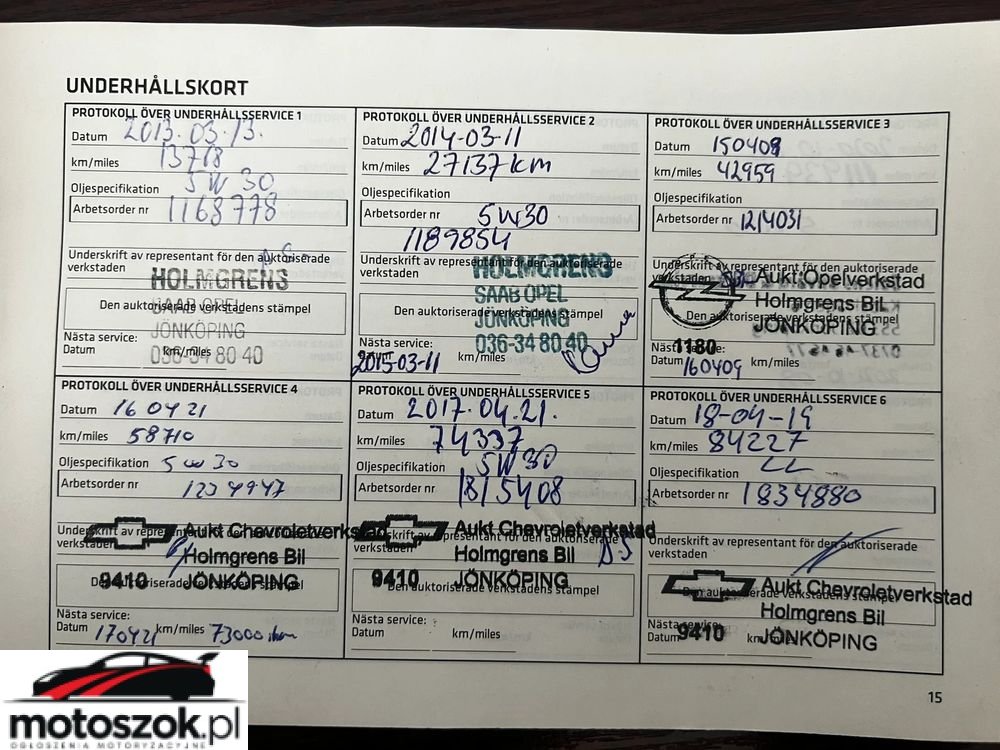 UNDERHÅLLSKORT
PROTOKOLL ÖVER UNDERHÅLLSSERVICE 1
Datum 2013.03.13.
km/miles 13718
Oljespecifikation 5W30
Arbetsorder nr 1168778
Underskrift av representant för den auktoriserade
verkstaden
HOLMGRENS
SAAB OPEL
Den auktoriserade verkstadens stämpel
JÖNKÖPING
036-34 80 40
Nästa service:
Datum km/miles
PROTOKOLL ÖVER UNDERHÅLLSSERVICE 2
Datum 2014-03-11
km/miles 27137 km
Oljespecifikation
Arbetsorder nr 5W30
1189854
Underskrift av representant för den auktoriserade
verkstaden
HOLMGRENS
SAAB OPEL
Den auktoriserade verkstadens stämpel
JÖNKÖPING
036-34 80 40
Nästa service:
Datum 2015-03-11 km/miles
PROTOKOLL ÖVER UNDERHÅLLSSERVICE 3
Datum 150409
km/miles 42959
Oljespecifikation
Arbetsorder nr 1214031
Underskrift av representant för den auktoriserade
verkstaden
Aukt Opelverkstad
Holmgrens Bil
Den auktoriserade verkstadens stämpel
JÖNKÖPING
1180
Nästa service:
Datum 160409 km/miles
PROTOKOLL ÖVER UNDERHÅLLSSERVICE 4
Datum 160421
km/miles 58710
Oljespecifikation 5W30
Arbetsorder nr 1234947
Underskrift av representant för den auktoriserade
verkstaden
Aukt Chevroletverkstad
Holmgrens Bil
9410 JÖNKÖPING
Den auktoriserade verkstadens stämpel
Nästa service:
Datum 170421 km/miles 73000
PROTOKOLL ÖVER UNDERHÅLLSSERVICE 5
Datum 2017.04.21.
km/miles 74337
Oljespecifikation 5W30
Arbetsorder nr 1815408
Underskrift av representant för den auktoriserade
verkstaden
Aukt Chevroletverkstad
Holmgrens Bil
9410 JÖNKÖPING
Den auktoriserade verkstadens stämpel
Nästa service:
Datum km/miles
PROTOKOLL ÖVER UNDERHÅLLSSERVICE 6
Datum 18-04-19
km/miles 84227
Oljespecifikation LL
Arbetsorder nr 1834880
Underskrift av representant för den auktoriserade
verkstaden
Aukt Chevroletverkstad
Den auktoriserade verkstadens stämpel
Holmgrens Bil
9410 JÖNKÖPING
Nästa service:
Datum km/miles
15
motoszok.pl
OGŁOSZENIA MOTORYZACYJNE